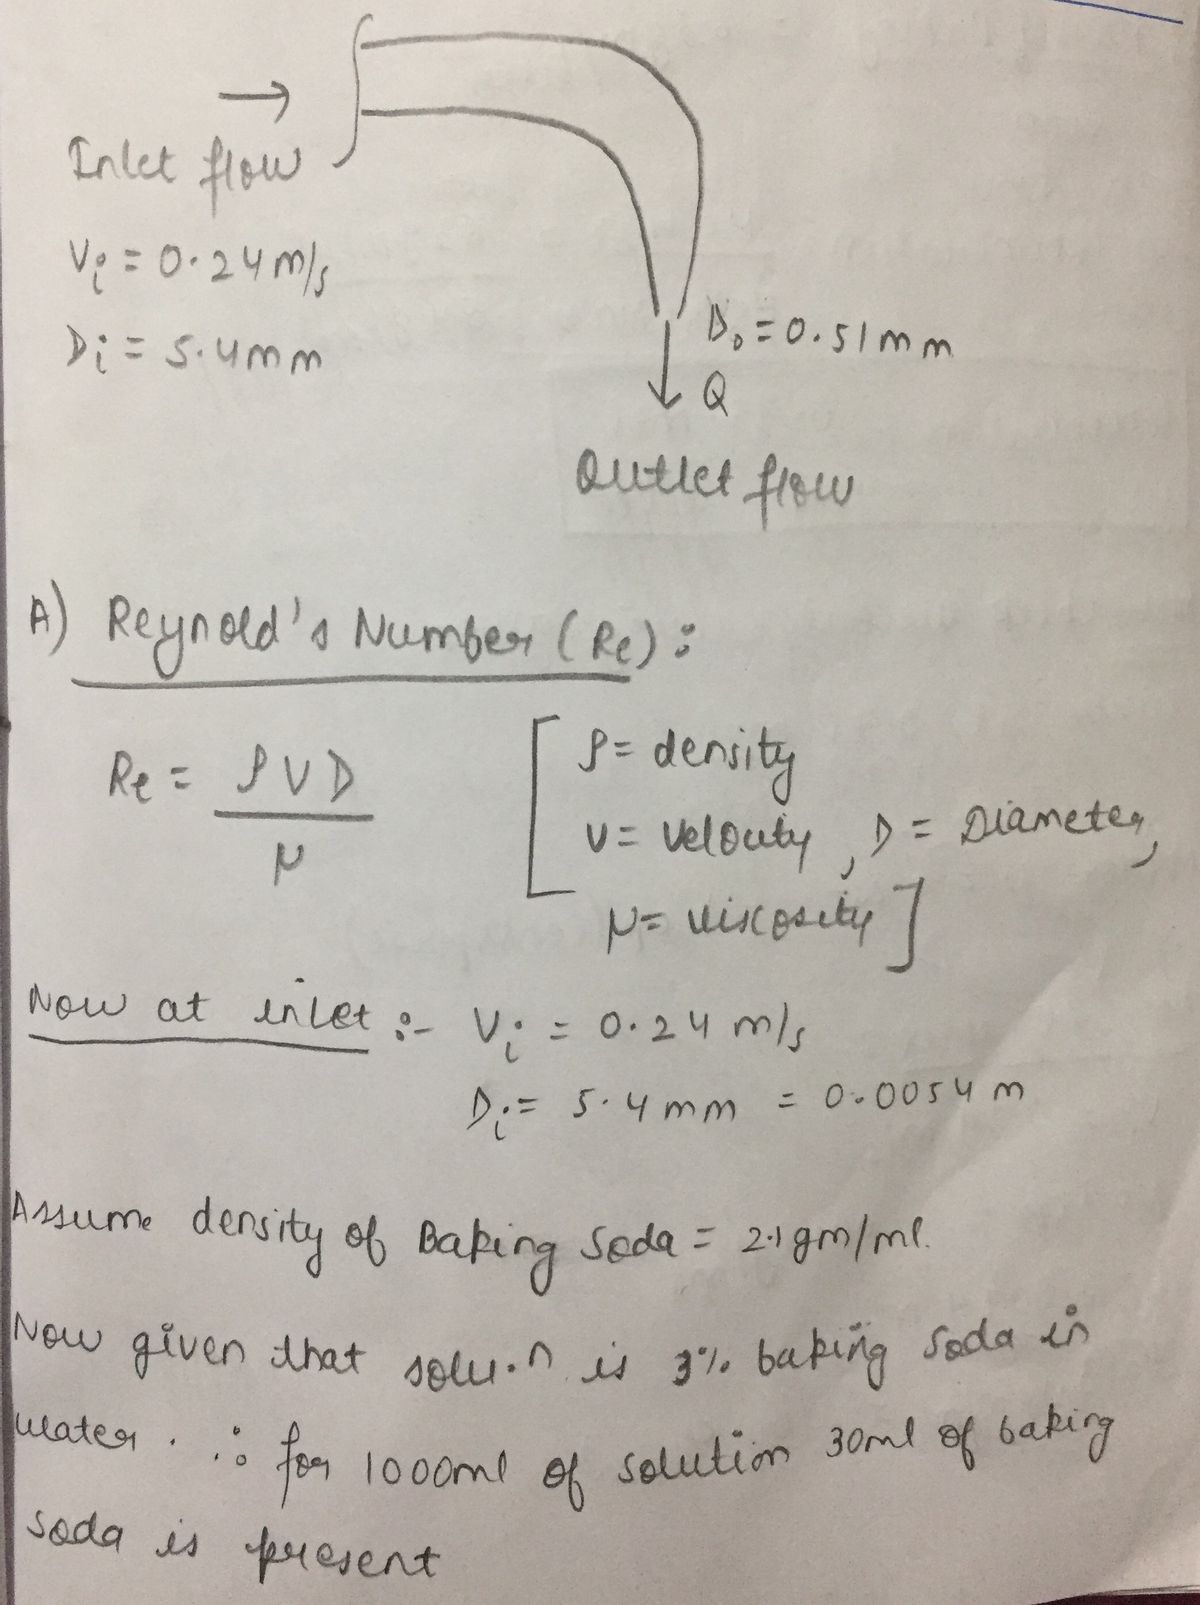 Inlet flow
Vi = 0.24 m/s
Di = 5.4 mm
Do = 0.51 mm
Q
Outlet flow
A) Reynold's Number (Re) :
Re = ρVD / μ
[ρ = density
V = Velocity, D = Diameter,
μ = viscosity]
Now at inlet :- Vi = 0.24 m/s
Di = 5.4 mm = 0.0054 m
Assume density of Baking Soda = 2.1 gm/ml.
Now given that solu.n is 3% baking soda in
water. ∴ for 1000ml of solution 30ml of baking
soda is present